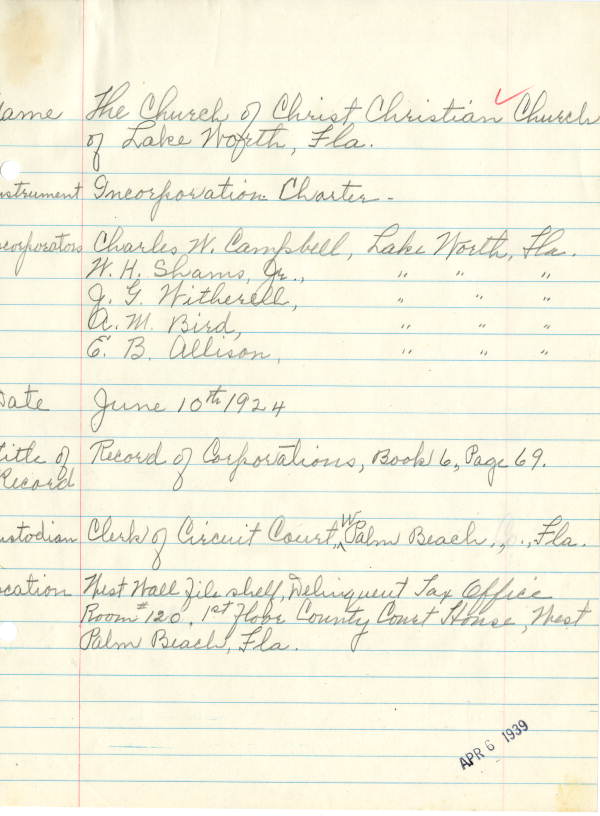 ame The Church of Christ, Christian Church
of Lake Worth, Fla.
nstrument Incorporation Charter -
ncorporators Charles W. Campbell, Lake Worth, Fla.
W. H. Shams, Jr., " " "
J. G. Witherell, " " "
A. M. Bird, " " "
E. B. Allison, " " "
Date June 10th 1924
Title of Record of Corporations, Book 16, Page 69.
Record
ustodian Clerk of Circuit Court, W. Palm Beach, Fla.
ocation West Wall File shelf, Delinquent Tax Office
Room #120, 1st Floor County Court House, West
Palm Beach, Fla.
APR 6 1939